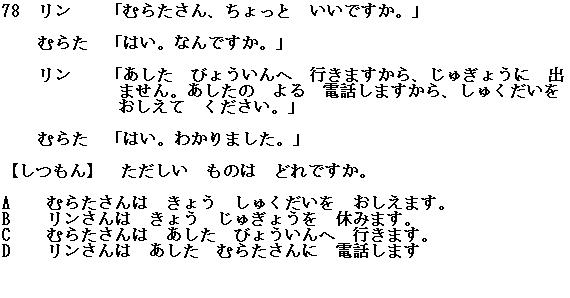 78 リン 「むらたさん、ちょっと いいですか。」
むらた 「はい。なんですか。」
リン 「あした びょういんへ 行きますから、じゅぎょうに 出
ません。あしたの よる 電話しますから、しゅくだいを
おしえて ください。」
むらた 「はい。わかりました。」
【しつもん】 ただしい ものは どれですか。
A むらたさんは きょう しゅくだいを おしえます。
B リンさんは きょう じゅぎょうを 休みます。
C むらたさんは あした びょういんへ 行きます。
D リンさんは あした むらたさんに 電話します